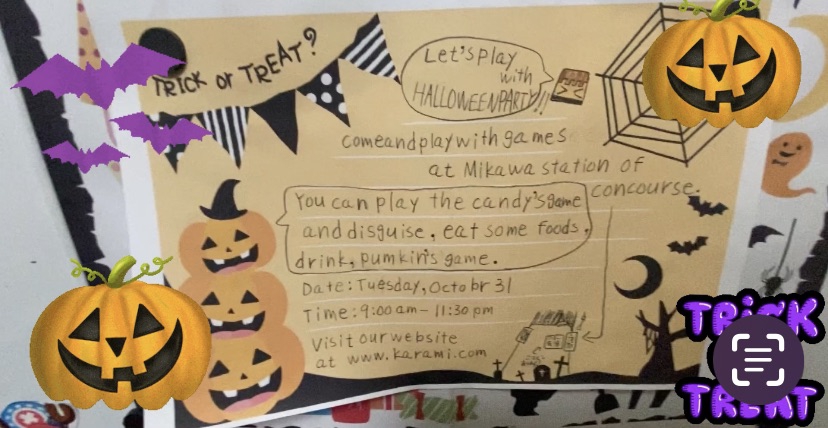 TRICK or TREAT?
Let's play
with
HALLOWEEN PARTY!!
come and play with games
at Mikawa station of
concourse.
You can play the candy's game
and disguise, eat some foods,
drink, pumkin's game.
Date: Tuesday, Octobr 31
Time: 9:00 am - 11:30 pm
Visit our website
at www.karami.com
TRiCK
TREAT